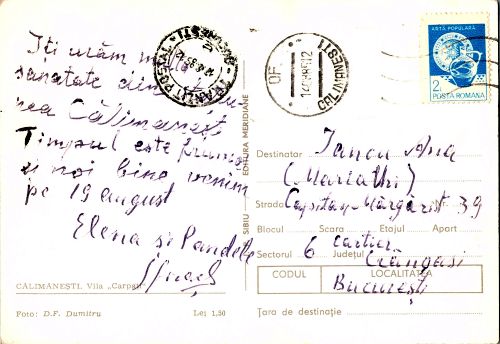 Iți urăm multă
sănătate din
Călimănești
Timpul este frumos
și noi bine venim
pe 19 august
Elena și Pandele
CĂLIMĂNEȘTI. Vila „Carpați"
Foto: D.F. Dumitru
Lei 1,50
SIBIU EDITURA MERIDIANE
OF
CĂLIMĂNEȘTI
ARTA POPULARĂ
2
POSTA ROMANA
Destinatar Iancu Ana
(Mariathi)
Strada Capitan Mărgărit Nr. 39
Blocul Scara Etajul Apart
Sectorul 6 Județul cartier
Crângași
CODUL LOCALITATEA
București
Țara de destinație